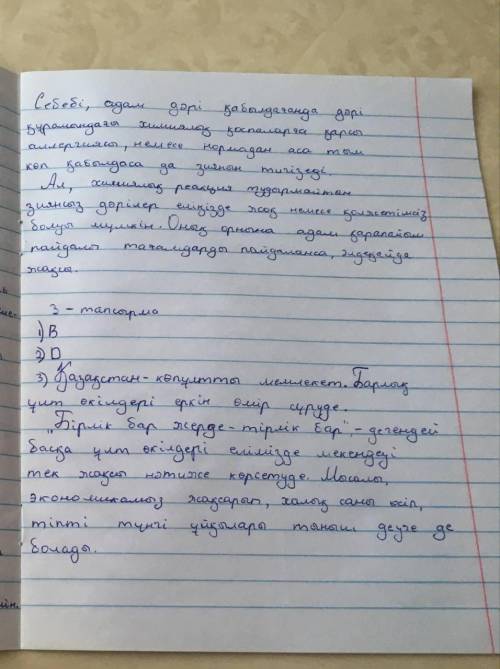 Себебі, адам дәрі қабылдағанда дәрі
құрамындағы химиялық қоспаларға қарсы
аллергиясы, немесе нормадан аса тым
көп қабылдаса да зиянын тигізеді.
Ал, химиялық реакция тудырмайтын
зиянсыз дәрілер елімізде жоқ немесе қолжетімсіз
болуы мүмкін. Оның орнына адам қарапайым
пайдалы тағамдарды пайдаланса, әлдеқайда
жақсы.
3 - тапсырма
1) B
2) D
3) Қазақстан - көпұлтты мемлекет. Барлық
ұлт өкілдері еркін өмір сүруде.
"Бірлік бар жерде - тірлік бар", - дегендей
басқа ұлт өкілдері елімізде мекендеуі
тек жақсы нәтиже көрсетуде. Мысалы,
экономикамыз жақсарып, халық саны өсіп,
тіпті түнгі ұйқылары тыныш деуге де
болады.